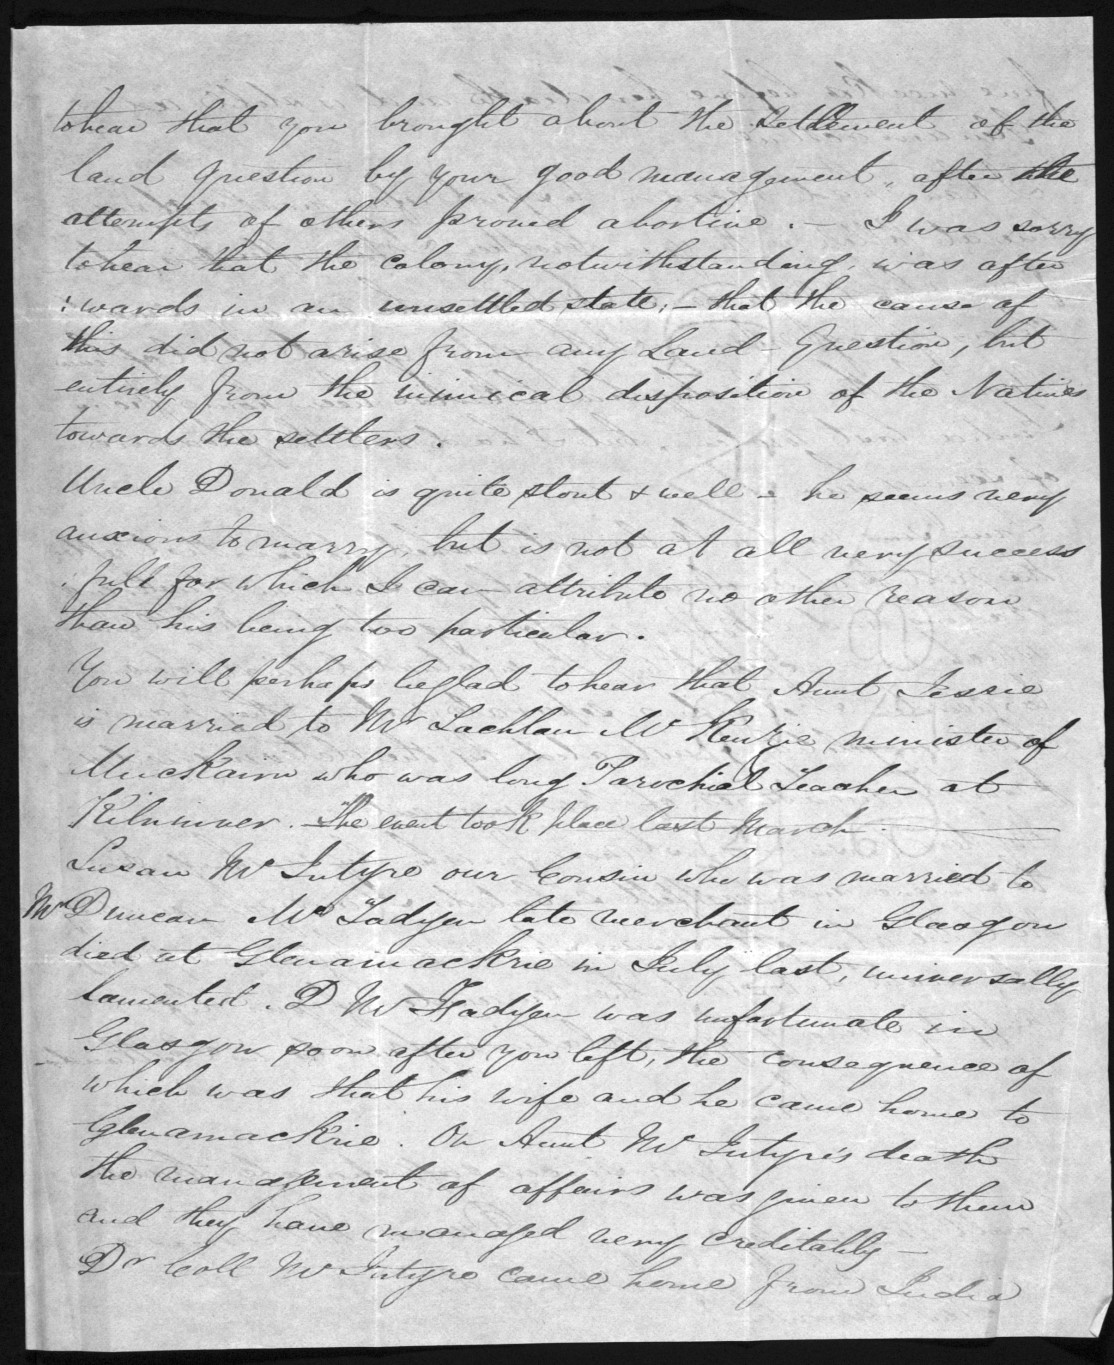 to hear that you brought about the settlement of the
land question by your good management, after the
attempts of others proved abortive. — I was sorry
to hear that the colony, notwithstanding, was after
: wards in an unsettled state, — that the cause of
this did not arise from any Land - Question, but
entirely from the inimical disposition of the Natives
towards the settlers.
Uncle Donald is quite stout & well - he seems very
anxious to marry, but is not at all very success
: full for which I can attribute no other reason
than his being too particular.
You will perhaps be glad to hear that Aunt Jessie
is married to Mr Lachlan Mc Kenzie minister of
Muckairn who was long Parochial Teacher at
Kilninver. The event took place last March.
Susan Mc Intyre our Cousin who was married to
Mr Duncan Mc Fadyen late merchant in Glasgow
died at Glenamackrie in July last, universally
lamented. D Mc Fadyen was unfortunate in
Glasgow soon after you left, the consequence of
which was that his wife and he came home to
Glenamackrie. On Aunt Mc Intyre's death
the management of affairs was given to them
and they have managed very creditably —
Dr Coll Mc Intyre came home from India